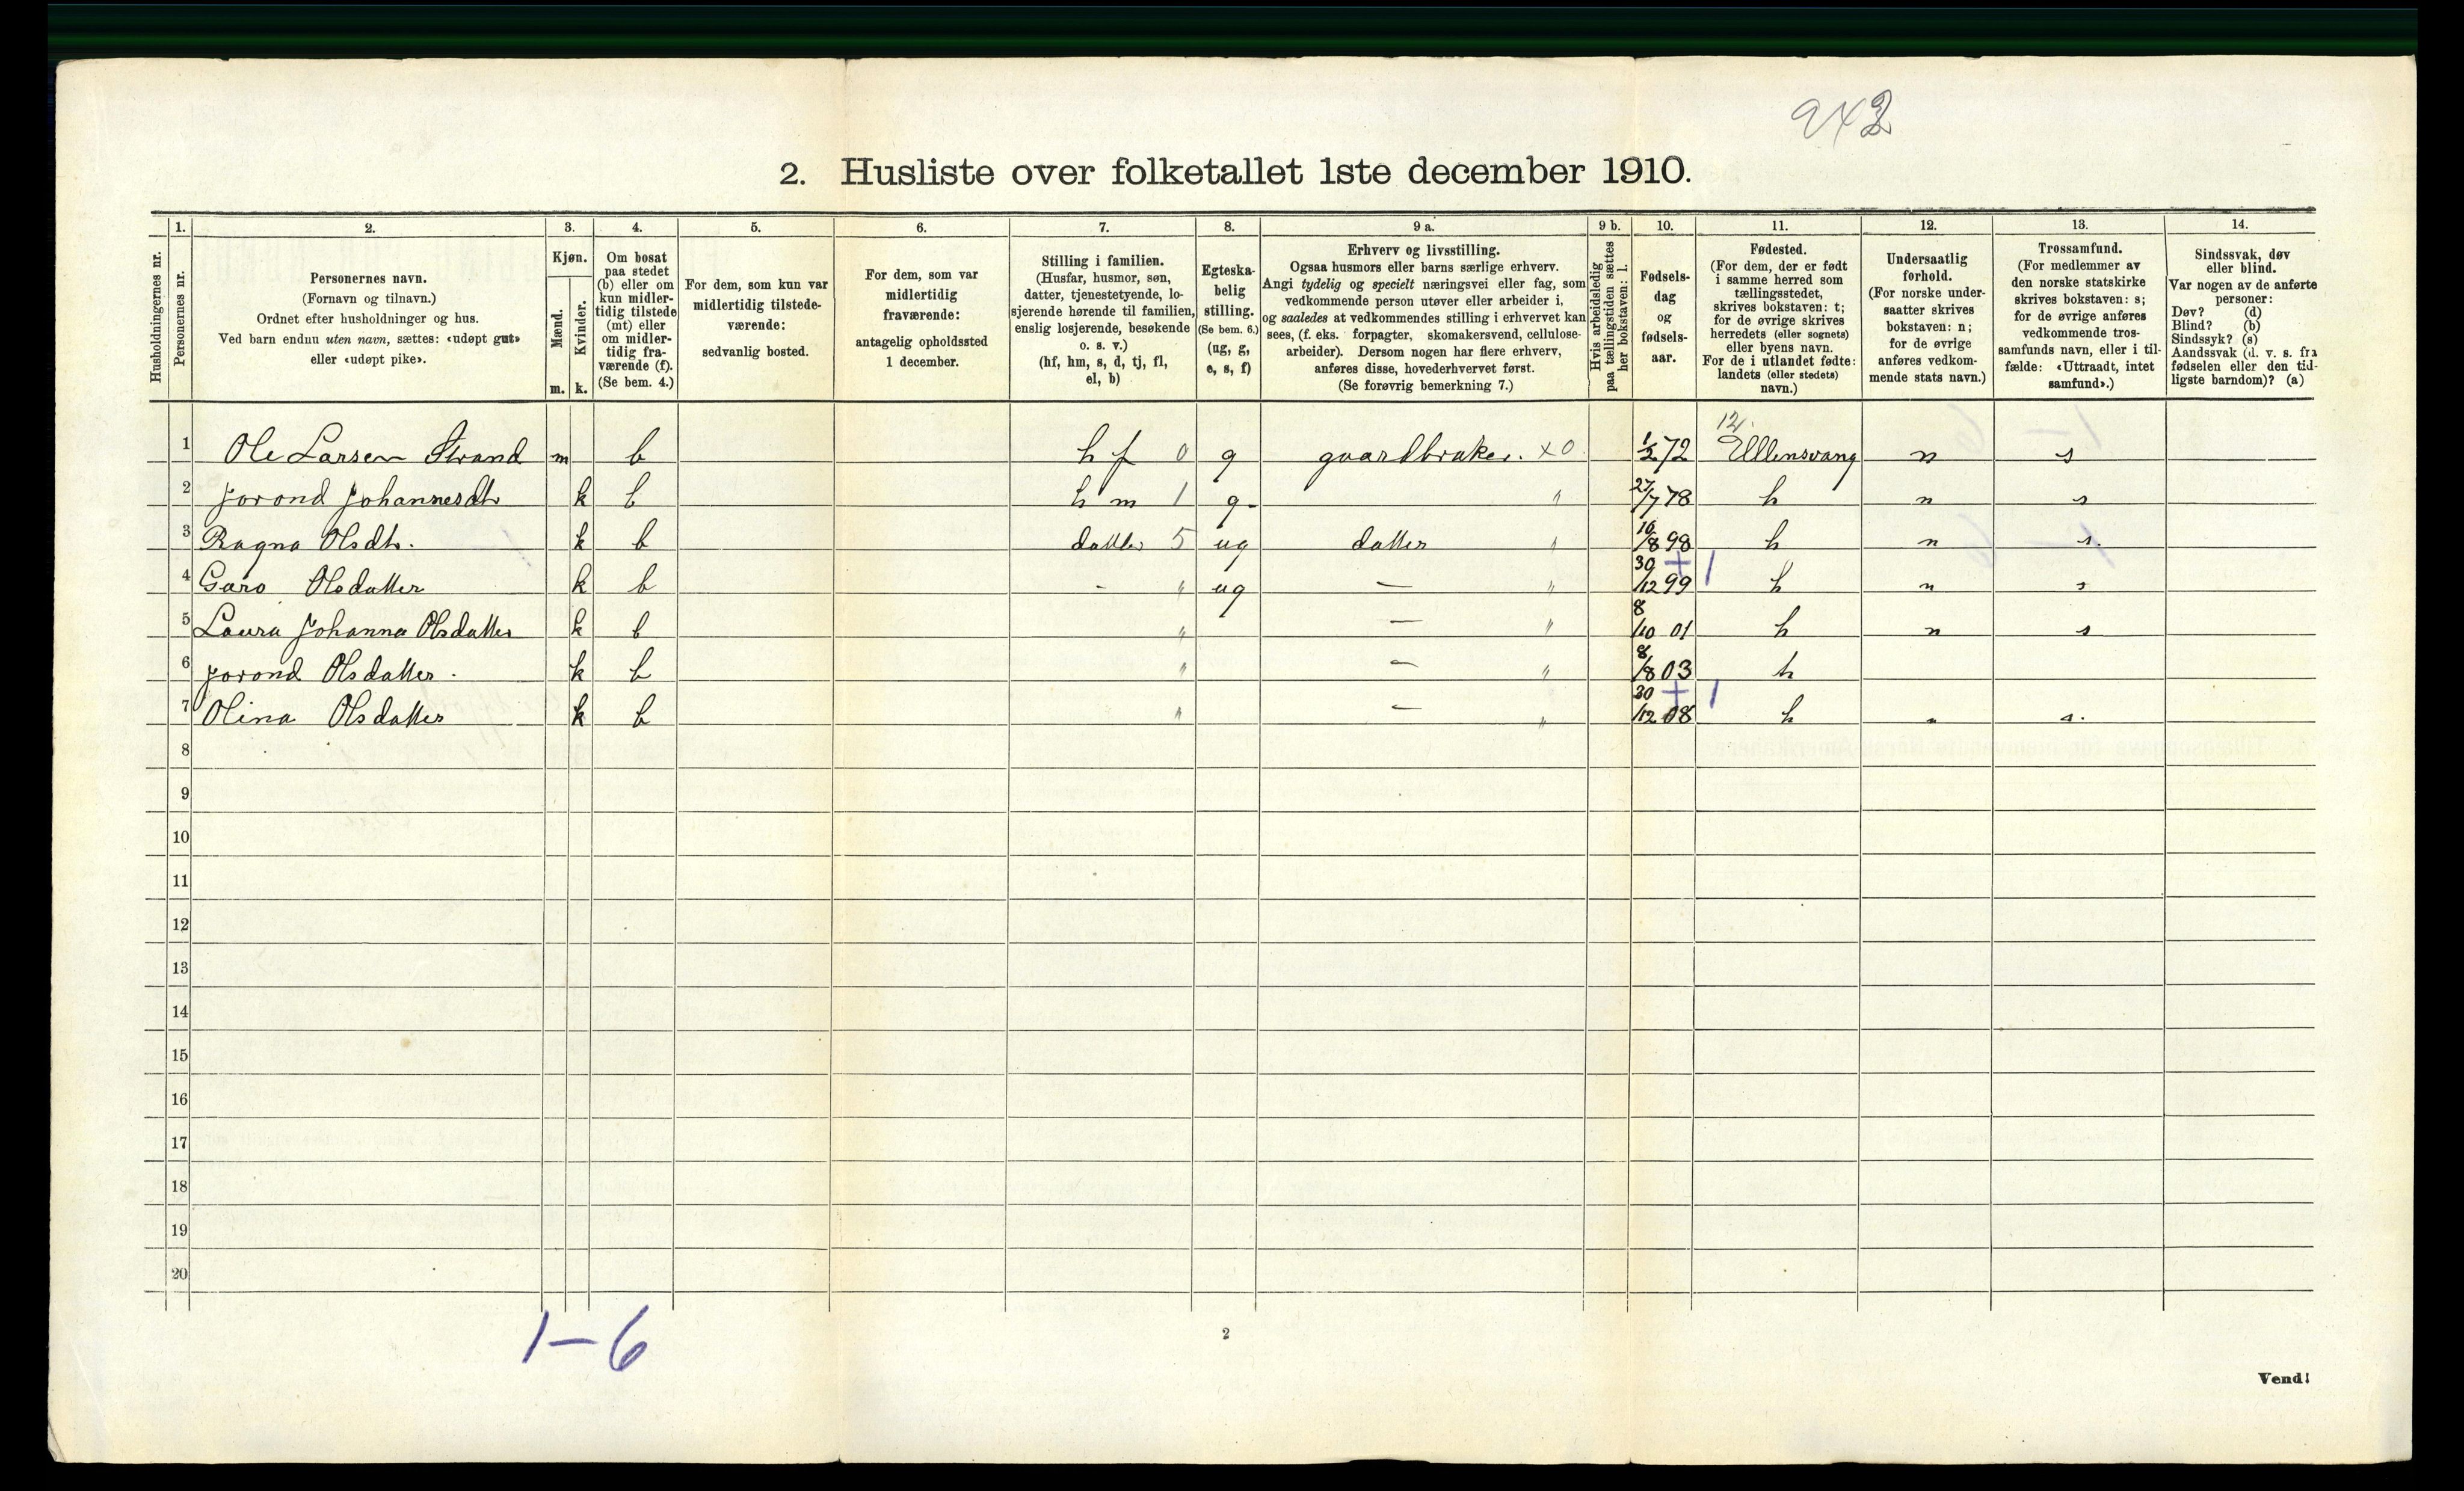 942
2. Husliste over folketallet 1ste december 1910.
1. 2. 3. 4. 5. 6. 7. 8. 9 a. 9 b. 10. 11. 12. 13. 14.
Husholdningernes nr.
Personernes nr.
Personernes navn.
(Fornavn og tilnavn.)
Ordnet efter husholdninger og hus.
Ved barn endnu uten navn, sættes: «udøpt gut»
eller «udøpt pike».
Kjøn.
Mænd.
Kvinder.
m. k.
Om bosat
paa stedet
(b) eller om
kun midler-
tidig tilstede
(mt) eller
om midler-
tidig fra-
værende (f).
(Se bem. 4.)
For dem, som kun var
midlertidig tilstede-
værende:
sedvanlig bosted.
For dem, som var
midlertidig
fraværende:
antagelig opholdssted
1 december.
Stilling i familien.
(Husfar, husmor, søn,
datter, tjenestetyende, lo-
sjerende hørende til familien,
enslig losjerende, besøkende
o. s. v.)
(hf, hm, s, d, tj, fl,
el, b)
Egteska-
belig
stilling.
(Se bem. 6.)
(ug, g,
e, s, f)
Erhverv og livsstilling.
Ogsaa husmors eller barns særlige erhverv.
Angi tydelig og specielt næringsvei eller fag, som
vedkommende person utøver eller arbeider i,
og saaledes at vedkommendes stilling i erhvervet kan
sees, (f. eks. forpagter, skomakersvend, cellulose-
arbeider). Dersom nogen har flere erhverv,
anføres disse, hovederhvervet først.
(Se forøvrig bemerkning 7.)
Hvis arbeidsledig
paa tællingstiden sættes
her bokstaven: l.
Fødsels-
dag
og
fødsels-
aar.
Fødested.
(For dem, der er født
i samme herred som
tællingsstedet,
skrives bokstaven: t;
for de øvrige skrives
herredets (eller sognets)
eller byens navn.
For de i utlandet fødte:
landets (eller stedets)
navn.)
Undersaatlig
forhold.
(For norske under-
saatter skrives
bokstaven: n;
for de øvrige
anføres vedkom-
mende stats navn.)
Trossamfund.
(For medlemmer av
den norske statskirke
skrives bokstaven: s;
for de øvrige anføres
vedkommende tros-
samfunds navn, eller i til-
fælde: «Uttraadt, intet
samfund».)
Sindssvak, døv
eller blind.
Var nogen av de anførte
personer:
Døv? (d)
Blind? (b)
Sindssyk? (s)
Aandssvak (d. v. s. fra
fødselen eller den tid-
ligste barndom)? (a)
12.
1 Ole Larsen Strand m b h f 0 g gaardbruker. x 0 1/2 72 Ullensvang n s
2 Jorond Johannesdtr k b h m 1 g. " 27/7 78 h n s
3 Ragna Olsdtr. k b datter 5 ug datter " 10/8 98 h n s.
4 Guro Olsdatter k b - " ug — " 30/12 99 + 1 h n s
5 Laura Johanna Olsdatter k b " — " 8/10 01 h n s
6 Jorond Olsdatter. k b " — " 8/8 03 h
7 Olina Olsdatter k b " — " 30/12 08 + 1 h n s.
8
9
10
11
12
13
14
15
16
17
18
19
20
1-6
2
Vend!